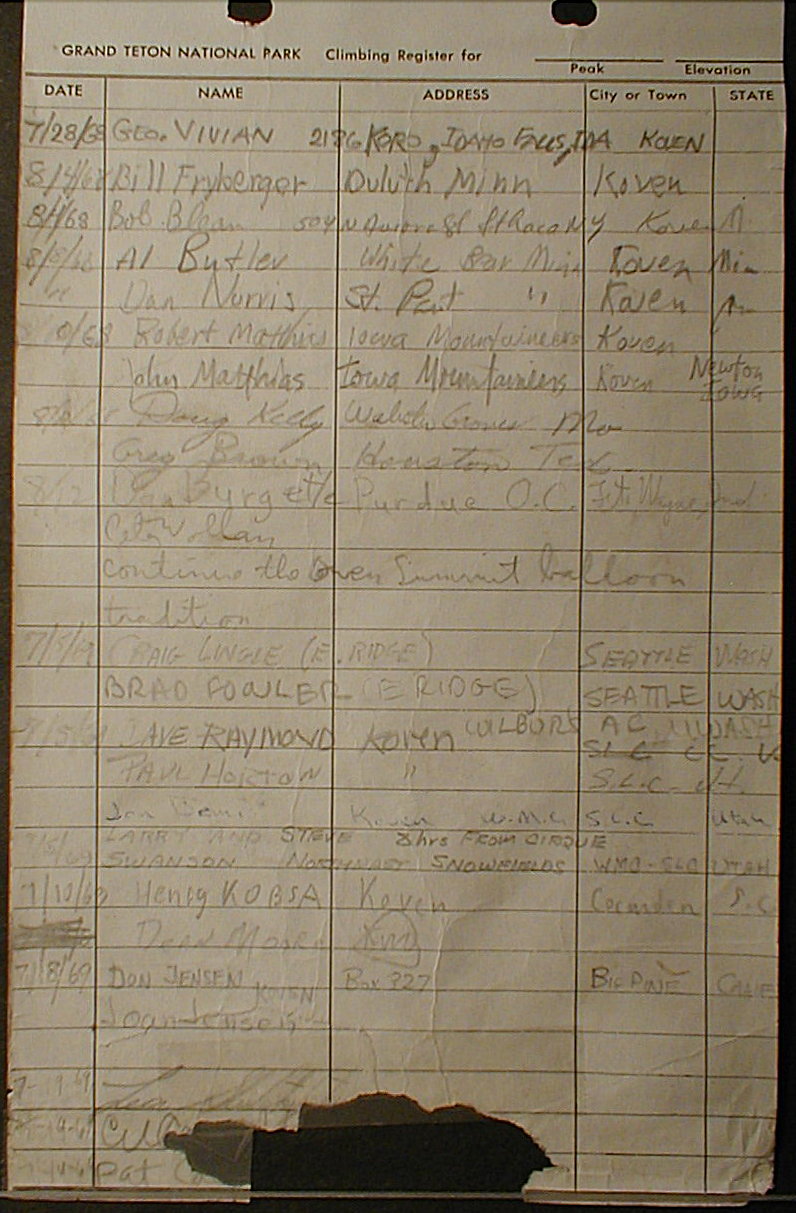 GRAND TETON NATIONAL PARK Climbing Register for
Peak Elevation
DATE NAME ADDRESS City or Town STATE
7/28/68 GEO. VIVIAN 2186 KORD, IDAHO FALLS, IDA KOVEN
8/4/68 Bill Fryberger Duluth Minn Koven
8/4/68 Bob 504 N Aurora St NY Koven
Al Butler White Bear Minn Koven Min
Dan Norris St. " Koven
/68 Robert Matthias Iowa Mountaineers Koven
John Matthias Iowa Mountaineers Koven Newton Iowa
Doug Kelly Webster Groves Mo
Greg Brown Houston Tex
8/12 Burgette Purdue O.C. Ft. Wayne, Ind
continue the Owen Summit balloon
tradition
CRAIG LINGLE (E. RIDGE) SEATTLE WASH
BRAD FOWLER (E RIDGE) SEATTLE WASH
DAVE RAYMOND Koven WILBURS A C, UWASH
PAUL HORTON " S.L.C. Ut.
Koven W.M.C. S.L.C. Utah
LARRY AND STEVE 8 hrs FROM CIRQUE
SWANSON NORTHEAST SNOWFIELDS WMC-SLC UTAH
7/10/69 Henry KOBSA Koven Camden S.C.
Dean Moore
7/18/69 DON JENSEN KOVEN Box 327 BIG PINE CALIF
Joan Jensen
7-19-69
Pat